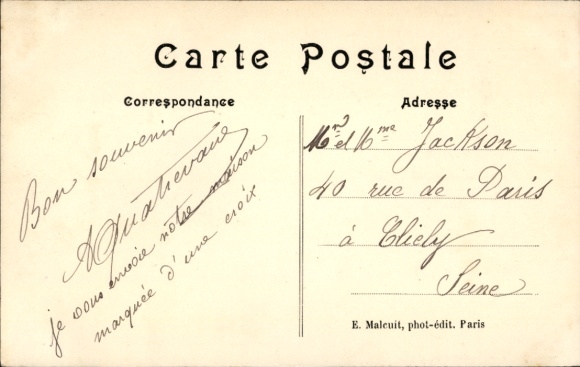 Carte Postale
Correspondance
Bon souvenir
je vous envoie notre maison
marquée d'une croix
Adresse
Mr et Mme Jackson
40 rue de Paris
à Clichy
Seine
E. Malcuit, phot-édit. Paris